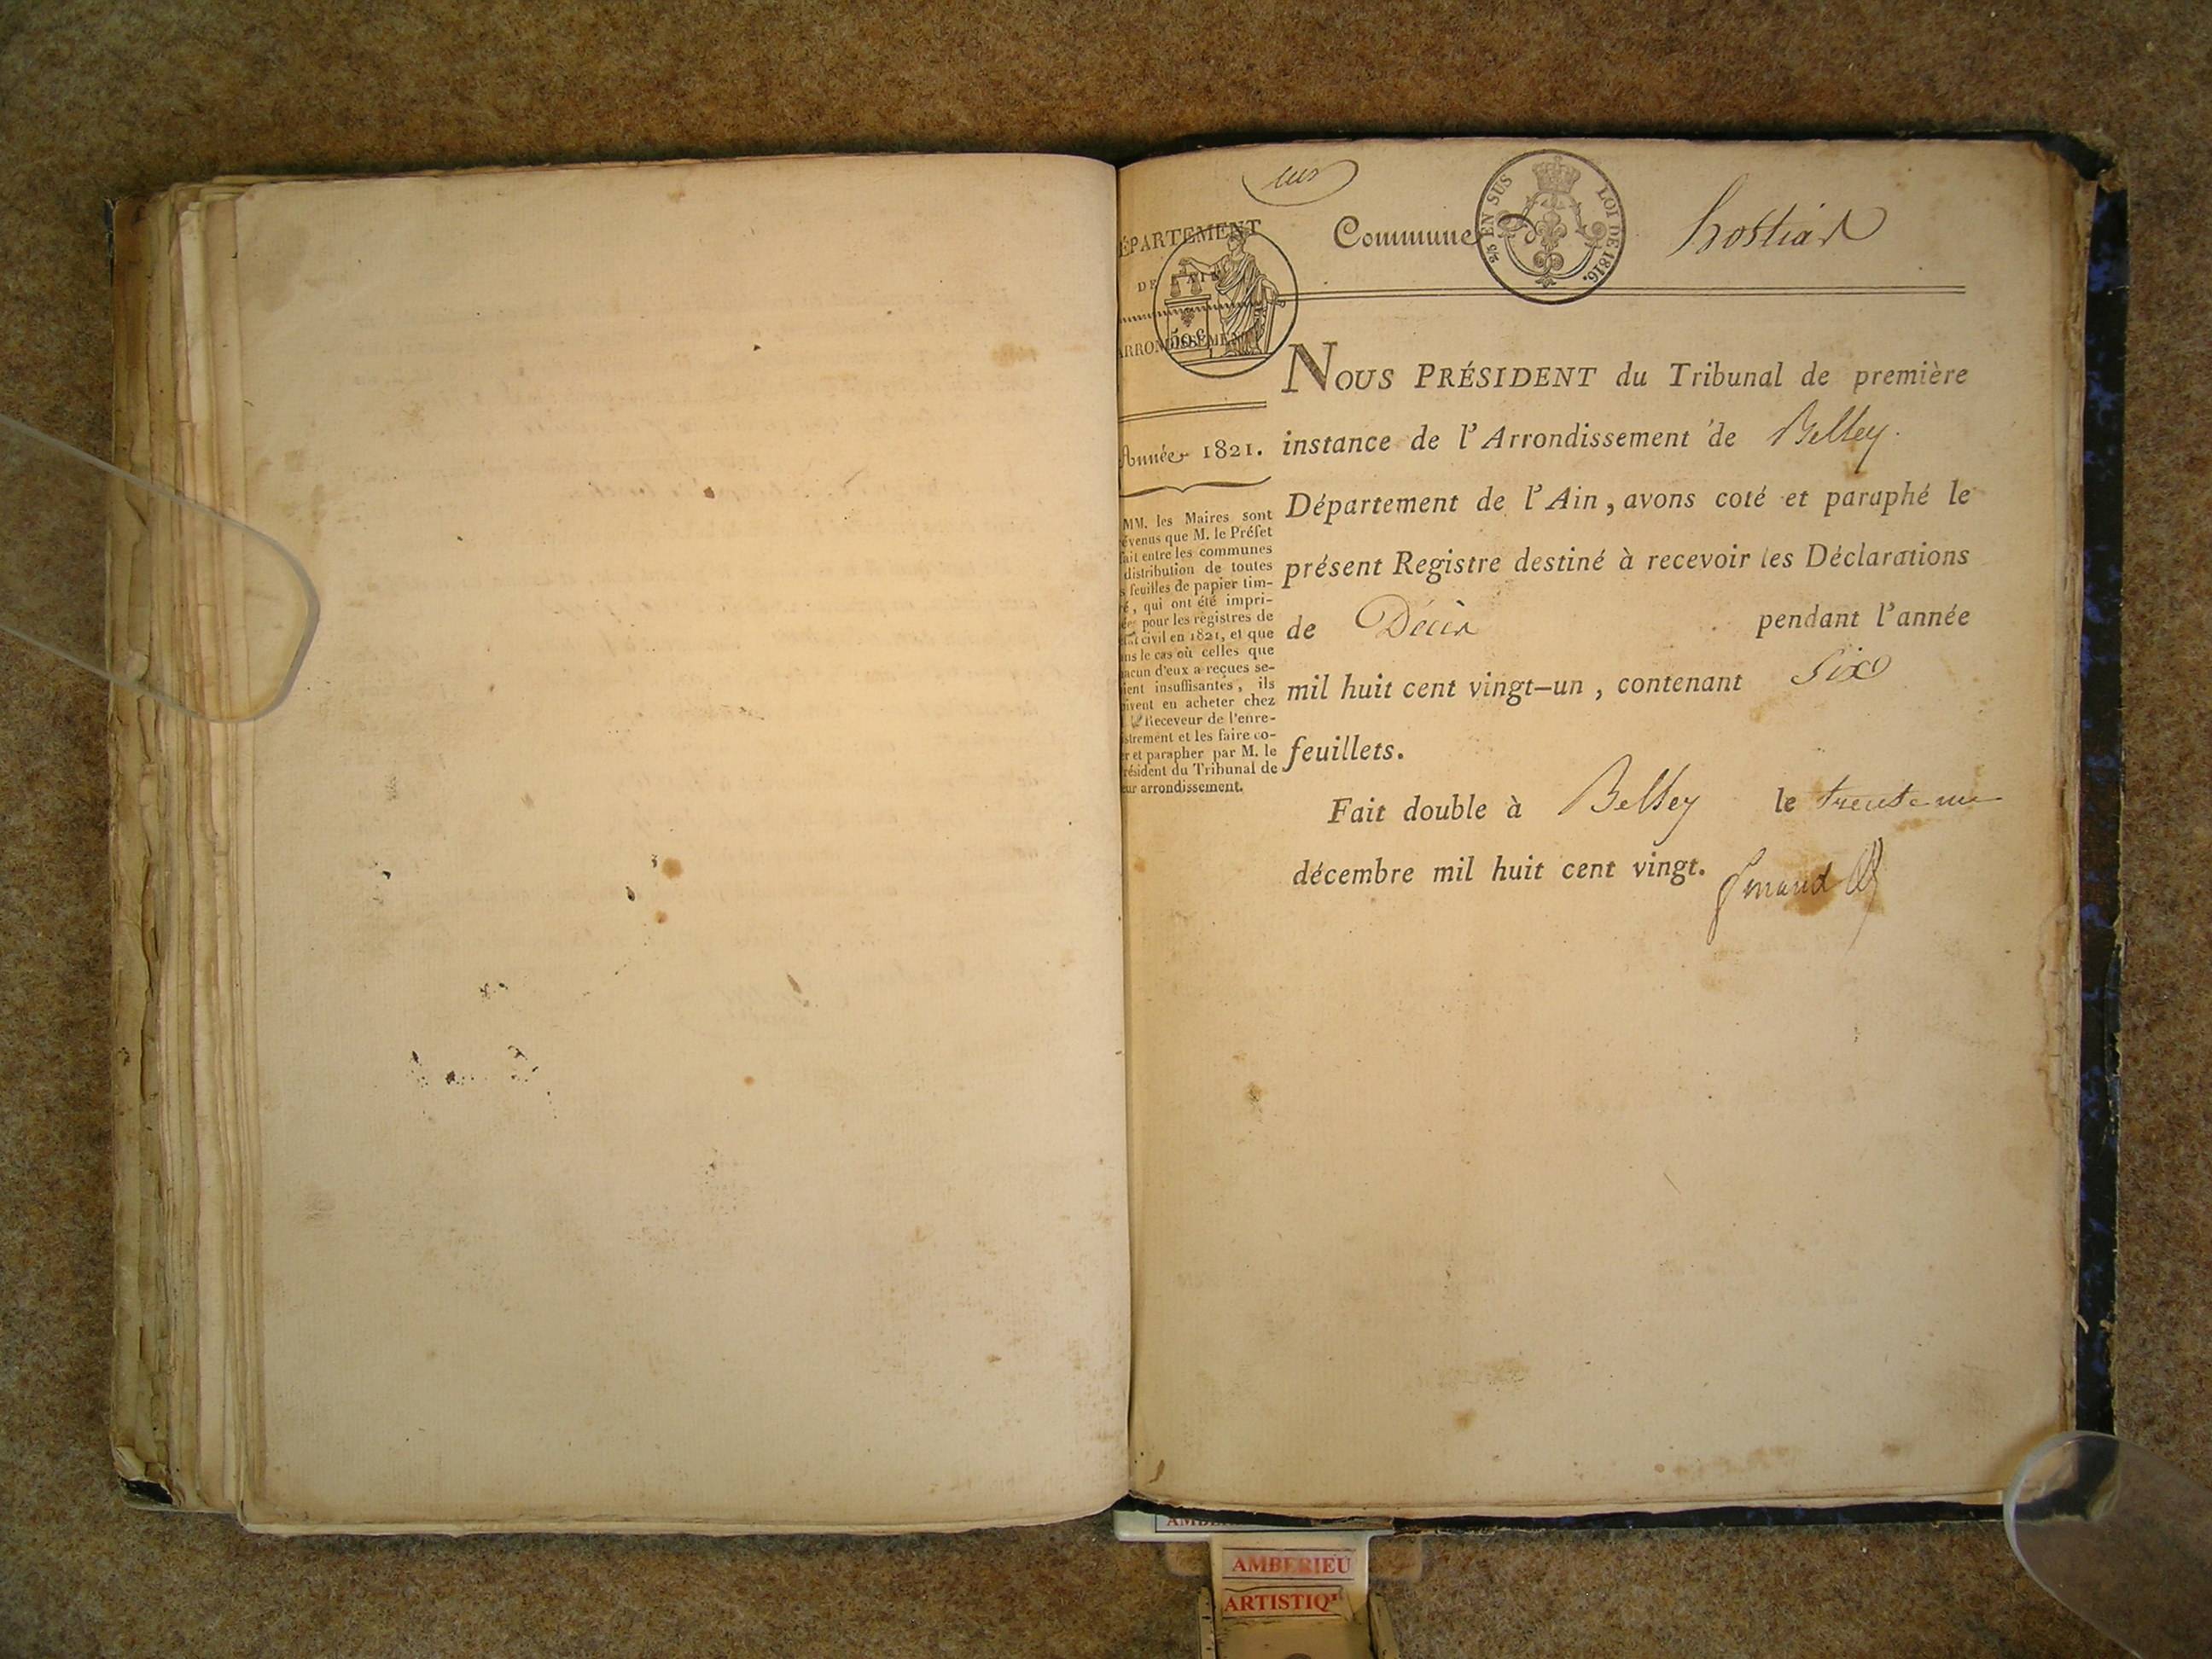 Commune
hostias
2/5 EN SUS
LOI DE 1816.
ÉPARTEMENT
DE
AIN
50 c
ARRONDISSEMENT
Année 1821.
MM. les Maires sont
évenus que M. le Préfet
fait entre les communes
distribution de toutes
s feuilles de papier tim-
é, qui ont été impri-
ées pour les registres de
tat civil en 1821, et que
ans le cas où celles que
acun d'eux a reçues se-
ient insuffisantes, ils
ivent en acheter chez
le Receveur de l'enre-
istrement et les faire co-
er et parapher par M. le
résident du Tribunal de
eur arrondissement.
NOUS PRÉSIDENT du Tribunal de première
instance de l'Arrondissement de Belley.
Département de l'Ain, avons coté et paraphé le
présent Registre destiné à recevoir les Déclarations
de Décès pendant l'année
mil huit cent vingt-un, contenant Six
feuillets.
Fait double à Belley le trente un
décembre mil huit cent vingt.
AMBERIEU
ARTISTIQ